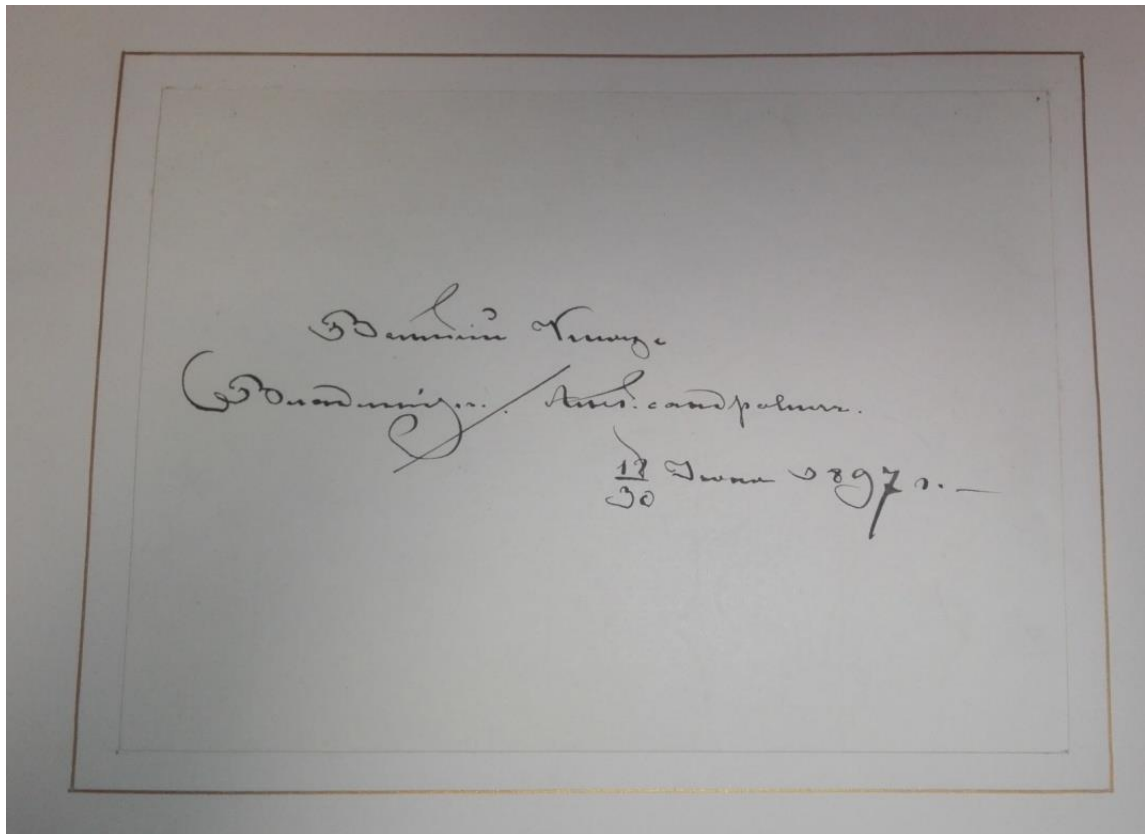 Великій Князь
Владиміръ Александровичъ.
18/30 Іюня 1897 г. —